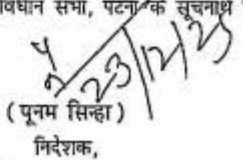 विधान सभा, पटना के सूचनार्थ
23/12/25
( पूनम सिन्हा )
निदेशक,